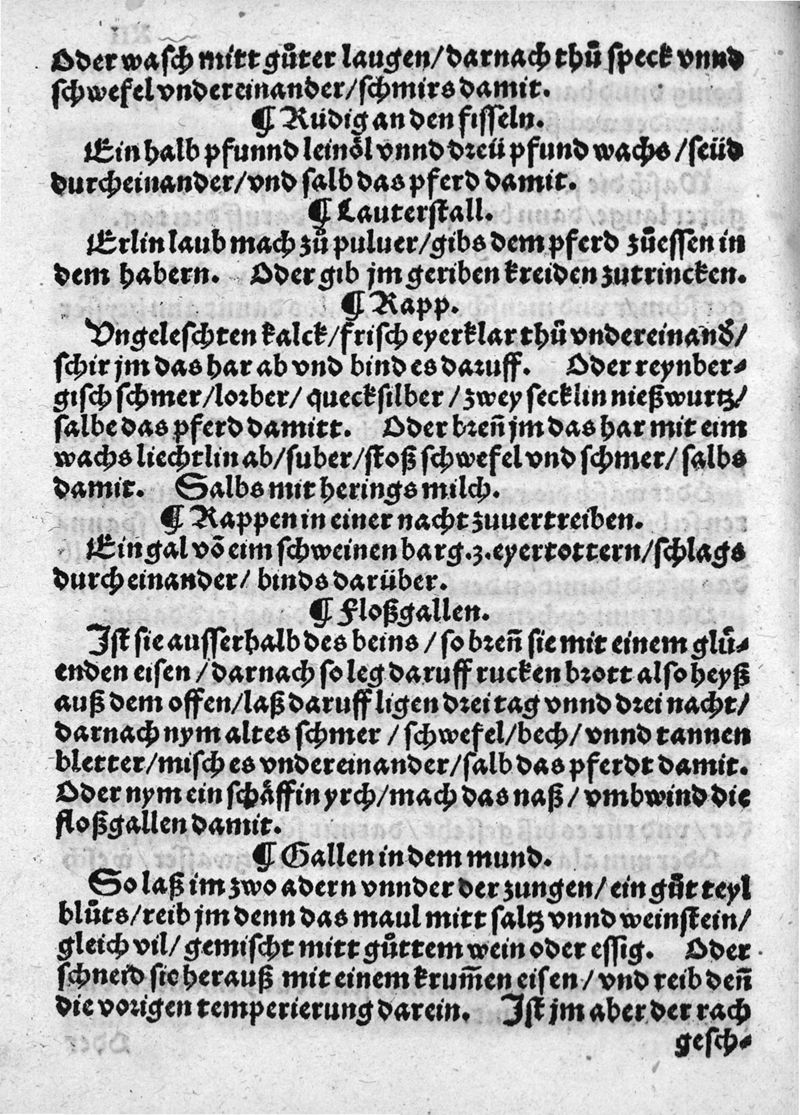 Oder wasch mitt gůter laugen/darnach thů speck vnnd
schwefel vndereinander/schmirs damit.
¶ Rüdig an den fisseln.
Ein halb pfunnd leinöl vnnd dreü pfund wachs/seüd
durcheinander/vnd salb das pferd damit.
¶ Lauterstall.
Erlin laub mach zů puluer/gibs dem pferd zůessen in
dem habern. Oder gib jm geriben kreiden zutrincken.
¶ Rapp.
Vngeleschten kalck/frisch eyerklar thů vndereinand̕/
schir jm das har ab vnd bind es daruff. Oder reynber-
gisch schmer/lorber/quecksilber/zwey secklin nießwurtz/
salbe das pferd damitt. Oder breñ jm das har mit eim
wachs liechtlin ab/suber/stoß schwefel vnd schmer/salbs
damit. Salbs mit herings milch.
¶ Rappen in einer nacht zuuertreiben.
Ein gal võ eim schweinen barg.3.eyertottern/schlags
durcheinander/binds darüber.
¶ Floßgallen.
Ist sie ausserhalb des beins/so breñ sie mit einem glü-
enden eisen/darnach so leg daruff rucken brott also heyß
auß dem offen/laß daruff ligen drei tag vnnd drei nacht/
darnach nym altes schmer/schwefel/bech/vnnd tannen
bletter/misch es vndereinander/salb das pferdt damit.
Oder nym ein schäffin yrch/mach das naß/vmbwind die
floßgallen damit.
¶ Gallen in dem mund.
So laß im zwo adern vnnder der zungen/ein gůt teyl
blůts/reib jm denn das maul mitt saltz vnnd weinstein/
gleich vil/gemischt mitt gůttem wein oder essig. Oder
schneid sie herauß mit einem krum̃en eisen/vnd reib deñ
die vorigen temperierung darein. Ist jm aber der rach
gesch-